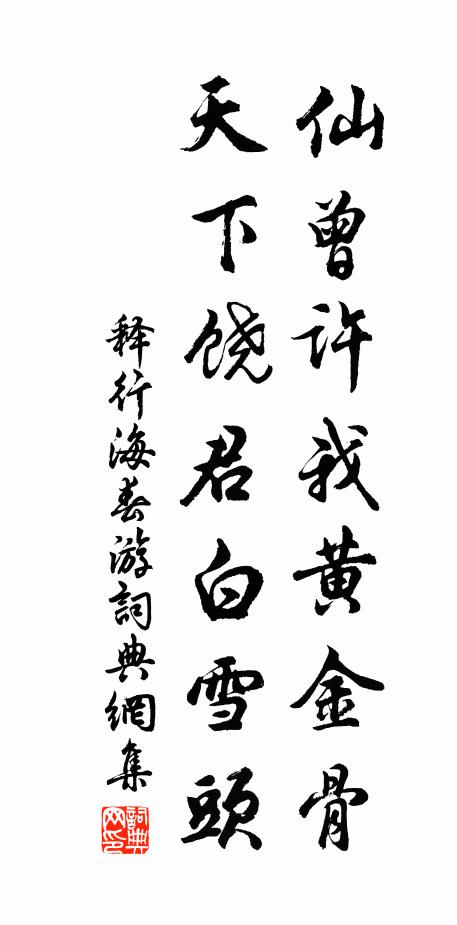 仙曾许我黄金骨
天下饶君白雪头
释行海春游詞典網集
詞典网印